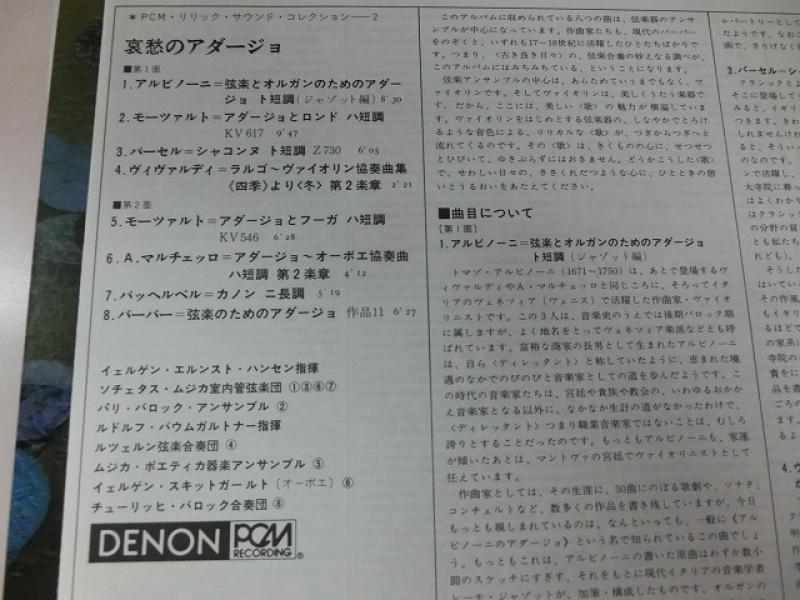 ＊PCM・リリック・サウンド・コレクション—2
哀愁のアダージョ
■第1面
1. アルビノーニ＝弦楽とオルガンのためのアダー
ジョ ト短調(ジャゾット編) 8′30
2. モーツァルト＝アダージョとロンド ハ短調
KV617 9′47
3. パーセル＝シャコンヌ ト短調 Z730 6′05
4. ヴィヴァルディ＝ラルゴ〜ヴァイオリン協奏曲集
《四季》より〈冬〉第2楽章 2′21
■第2面
5. モーツァルト＝アダージョとフーガ ハ短調
KV546 6′28
6. A.マルチェッロ＝アダージョ〜オーボエ協奏曲
ハ短調 第2楽章 4′12
7. パッヘルベル＝カノン ニ長調 5′19
8. バーバー＝弦楽のためのアダージョ 作品11 6′27
イェルゲン・エルンスト・ハンセン指揮
ソチェタス・ムジカ室内管弦楽団 ①③⑥⑦
パリ・バロック・アンサンブル ②
ルドルフ・バウムガルトナー指揮
ルツェルン弦楽合奏団 ④
ムジカ・ポエティカ器楽アンサンブル ⑤
イェルゲン・スキットガールト〔オーボエ〕 ⑥
チューリッヒ・バロック合奏団 ⑧
DENON PCM
RECORDING ®
このアルバムに収められている八つの曲は、弦楽器のアンサ
ンブルが中心になっています。作曲家たちも、現代のバーバー
をのぞくと、いずれも17〜18世紀に活躍したひとたちばかりで
す。つまり、〈古き良き日々〉の、弦楽合奏の妙えなる調べが、
このアルバムにはみちみちている、ということになります。
弦楽アンサンブルの中心は、あらためていうまでもなく、ヴ
ァイオリンです。そしてヴァイオリンは、美しくうたう楽器で
す。だから、ここには、美しい〈歌〉の魅力が横溢していま
す。ヴァイオリンをはじめとする弦楽器の、しなやかでとろけ
るような音色による、リリカルな〈歌〉が、つぎからつぎへと
流れてくるのです。その〈歌〉は、きくものの心に、せつせつ
とひびいて、ゆさぶらずにはおきません。どうかこうした〈歌〉
で、せわしい日々の、ささくれだつような心に、ひとときの憩
いとうるおいをあたえてください。
■曲目について
〔第1面〕
1. アルビノーニ＝弦楽とオルガンのためのアダージョ
ト短調(ジャゾット編)
トマゾ・アルビノーニ(1671〜1750)は、あとで登場するヴ
ィヴァルディやA・マルチェッロと同じころに、そろってイタ
リアのヴェネツィア（ヴェニス）で活躍した作曲家・ヴァイオ
リニストです。この3人は、音楽史のうえでは後期バロック期
に属しますが、よく地名をとってヴェネツィア楽派などとも呼
ばれています。富裕な商家の長男として生まれたアルビノーニ
は、自ら〈ディレッタント〉と称していたように、恵まれた境
遇のなかでのびのびと音楽家としての道を歩んだようです。こ
の時代の音楽家たちは、宮廷や貴族や教会の、いわゆるおかか
え音楽家となる以外に、なかなか生計の道がなかったわけで、
〈ディレッタント〉つまり職業音楽家ではないことは、むしろ
誇りとすることだったのです。もっともアルビノーニも、家運
が傾いたあとは、マントヴァの宮廷でヴァイオリニストとして
任えています。
作曲家としては、その生涯に、50曲にのぼる歌劇や、ソナタ、
コンチェルトなど、数多くの作品を書き残していますが、今日
もっとも親しまれているのは、なんといっても、一般に《アル
ビノーニのアダージョ》という名で知られているこの曲でしょ
う。もっともこれは、アルビノーニの書いた原曲はわずか数小
節のスケッチにすぎず、それをもとに現代イタリアの音楽学者
レーモ・ジャゾットが、加筆・構成したものです。オルガンの
レパートリーとして
たようです。なおこ
画で、さりげなく
3. パーセル＝シャ
クラシックとよ
そこに登場して